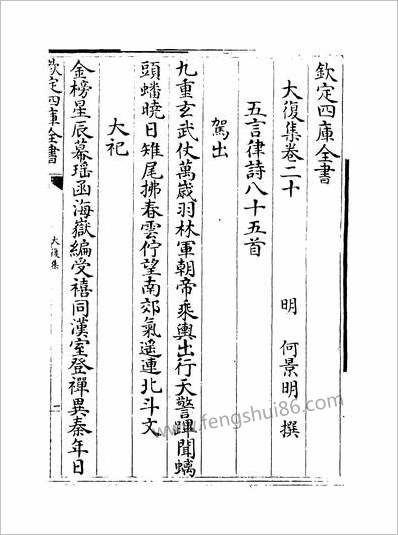 欽定四庫全書
大復集卷二十
明 何景明 撰
五言律詩八十五首
駕出
九重玄武仗萬嵗羽林軍朝帝乘輿出行天警蹕聞螭
頭蟠曉日雉尾拂春雲佇望南郊氣遙連北斗文
大祀
金榜星辰幕瑶函海嶽編受禧同漢室登禪異秦年日
欽定四庫全書
大復集
一
www.fengshui86.com